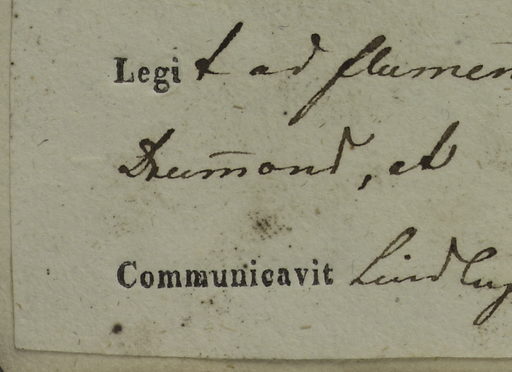 Legit ad flumen
Drum̄ond, et
Communicavit Lindley